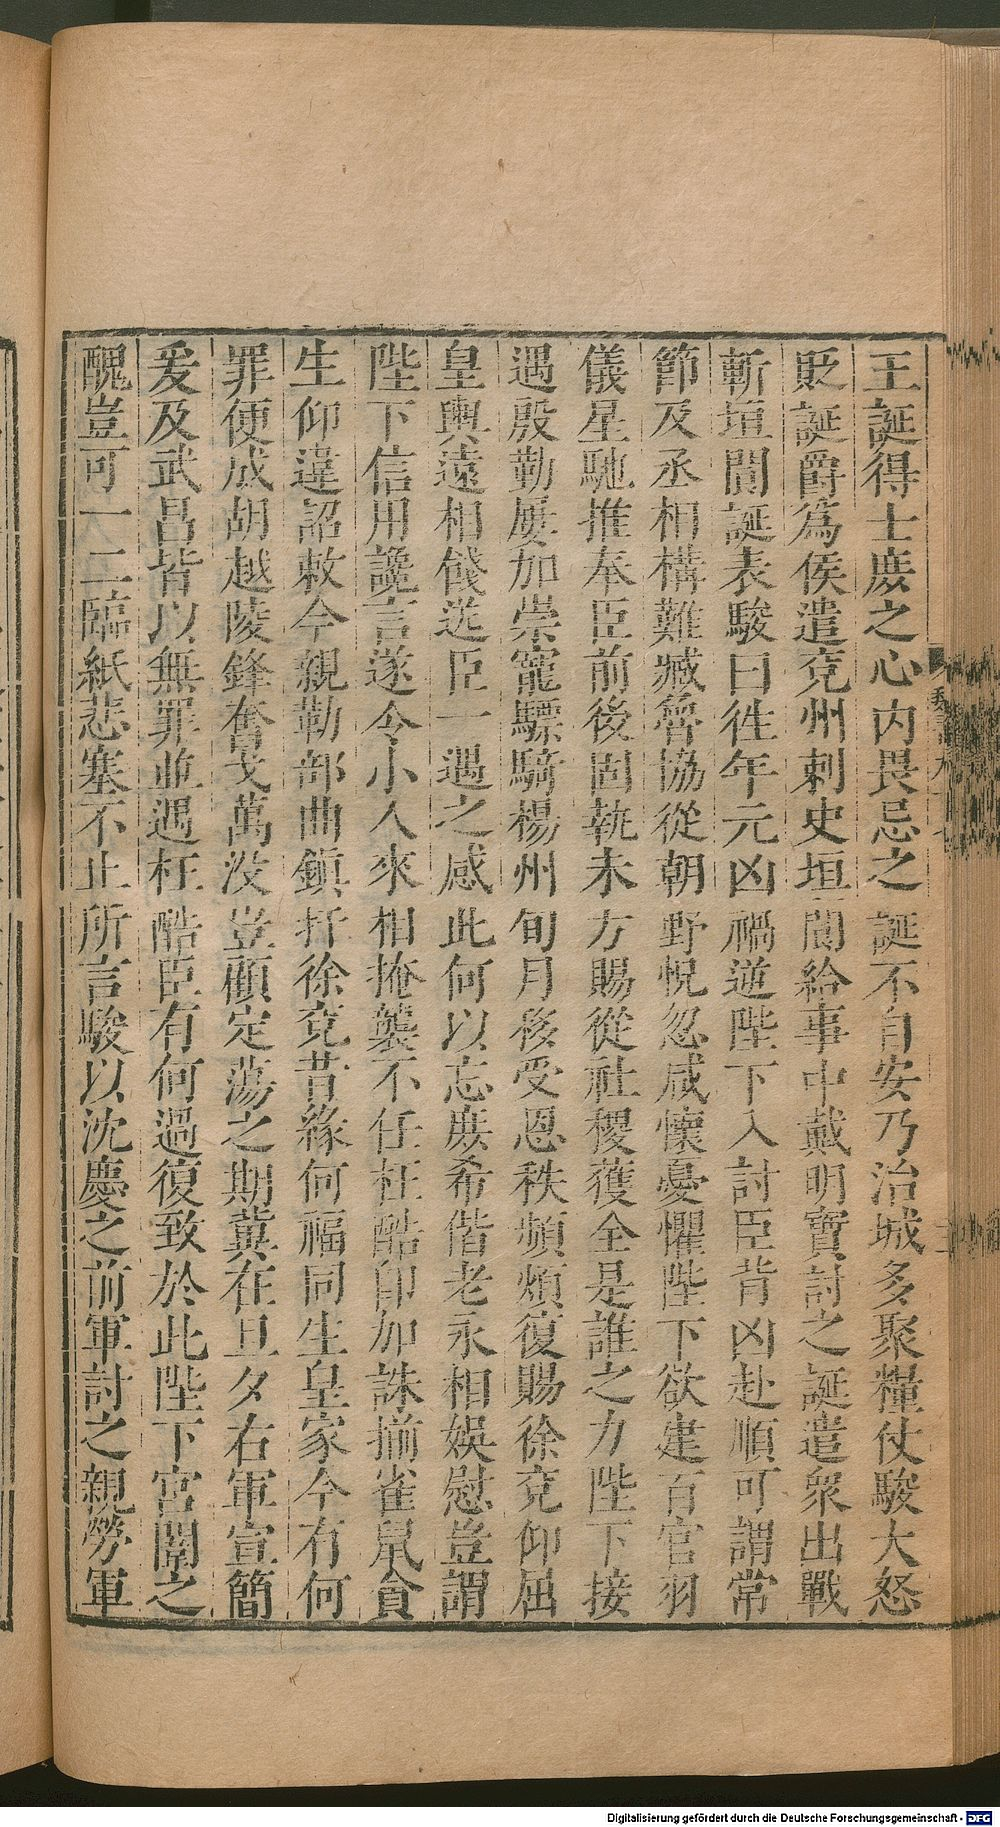 王誕得士庶之心内畏忌之誕不自安乃治城多聚糧仗駿大怒
貶誕爵為侯遣兖州刺史垣閬給事中戴明寶討之誕遣衆出戰
斬垣閬誕表駿曰徃年元凶禍逆陛下入討臣背凶赴順可謂常
節及丞相構難臧魯協從朝野怳忽咸懷憂懼陛下欲建百官羽
儀星馳推奉臣前後固執未方賜從社稷獲全是誰之力陛下接
遇殷勤屢加崇寵驃騎楊州旬月移受恩秩頻煩復賜徐兖仰屈
皇輿遠相餞送臣一遇之感此何以忘庶希偕老永相娛慰豈謂
陛下信用讒言遂令小人來相掩襲不任枉酷即加誅揃雀鼠貪
生仰違詔敕今親勒部曲鎮扞徐兖昔緣何福同生皇家今有何
罪便成胡越陵鋒奮戈萬沒豈顧定蕩之期冀在旦夕右軍宣簡
爰及武昌皆以無罪並遇枉酷臣有何過復致於此陛下宮闈之
醜豈可一二臨紙悲塞不止所言駿以沈慶之前軍討之親勞軍
Digitalisierung gefördert durch die Deutsche Forschungsgemeinschaft - DFG